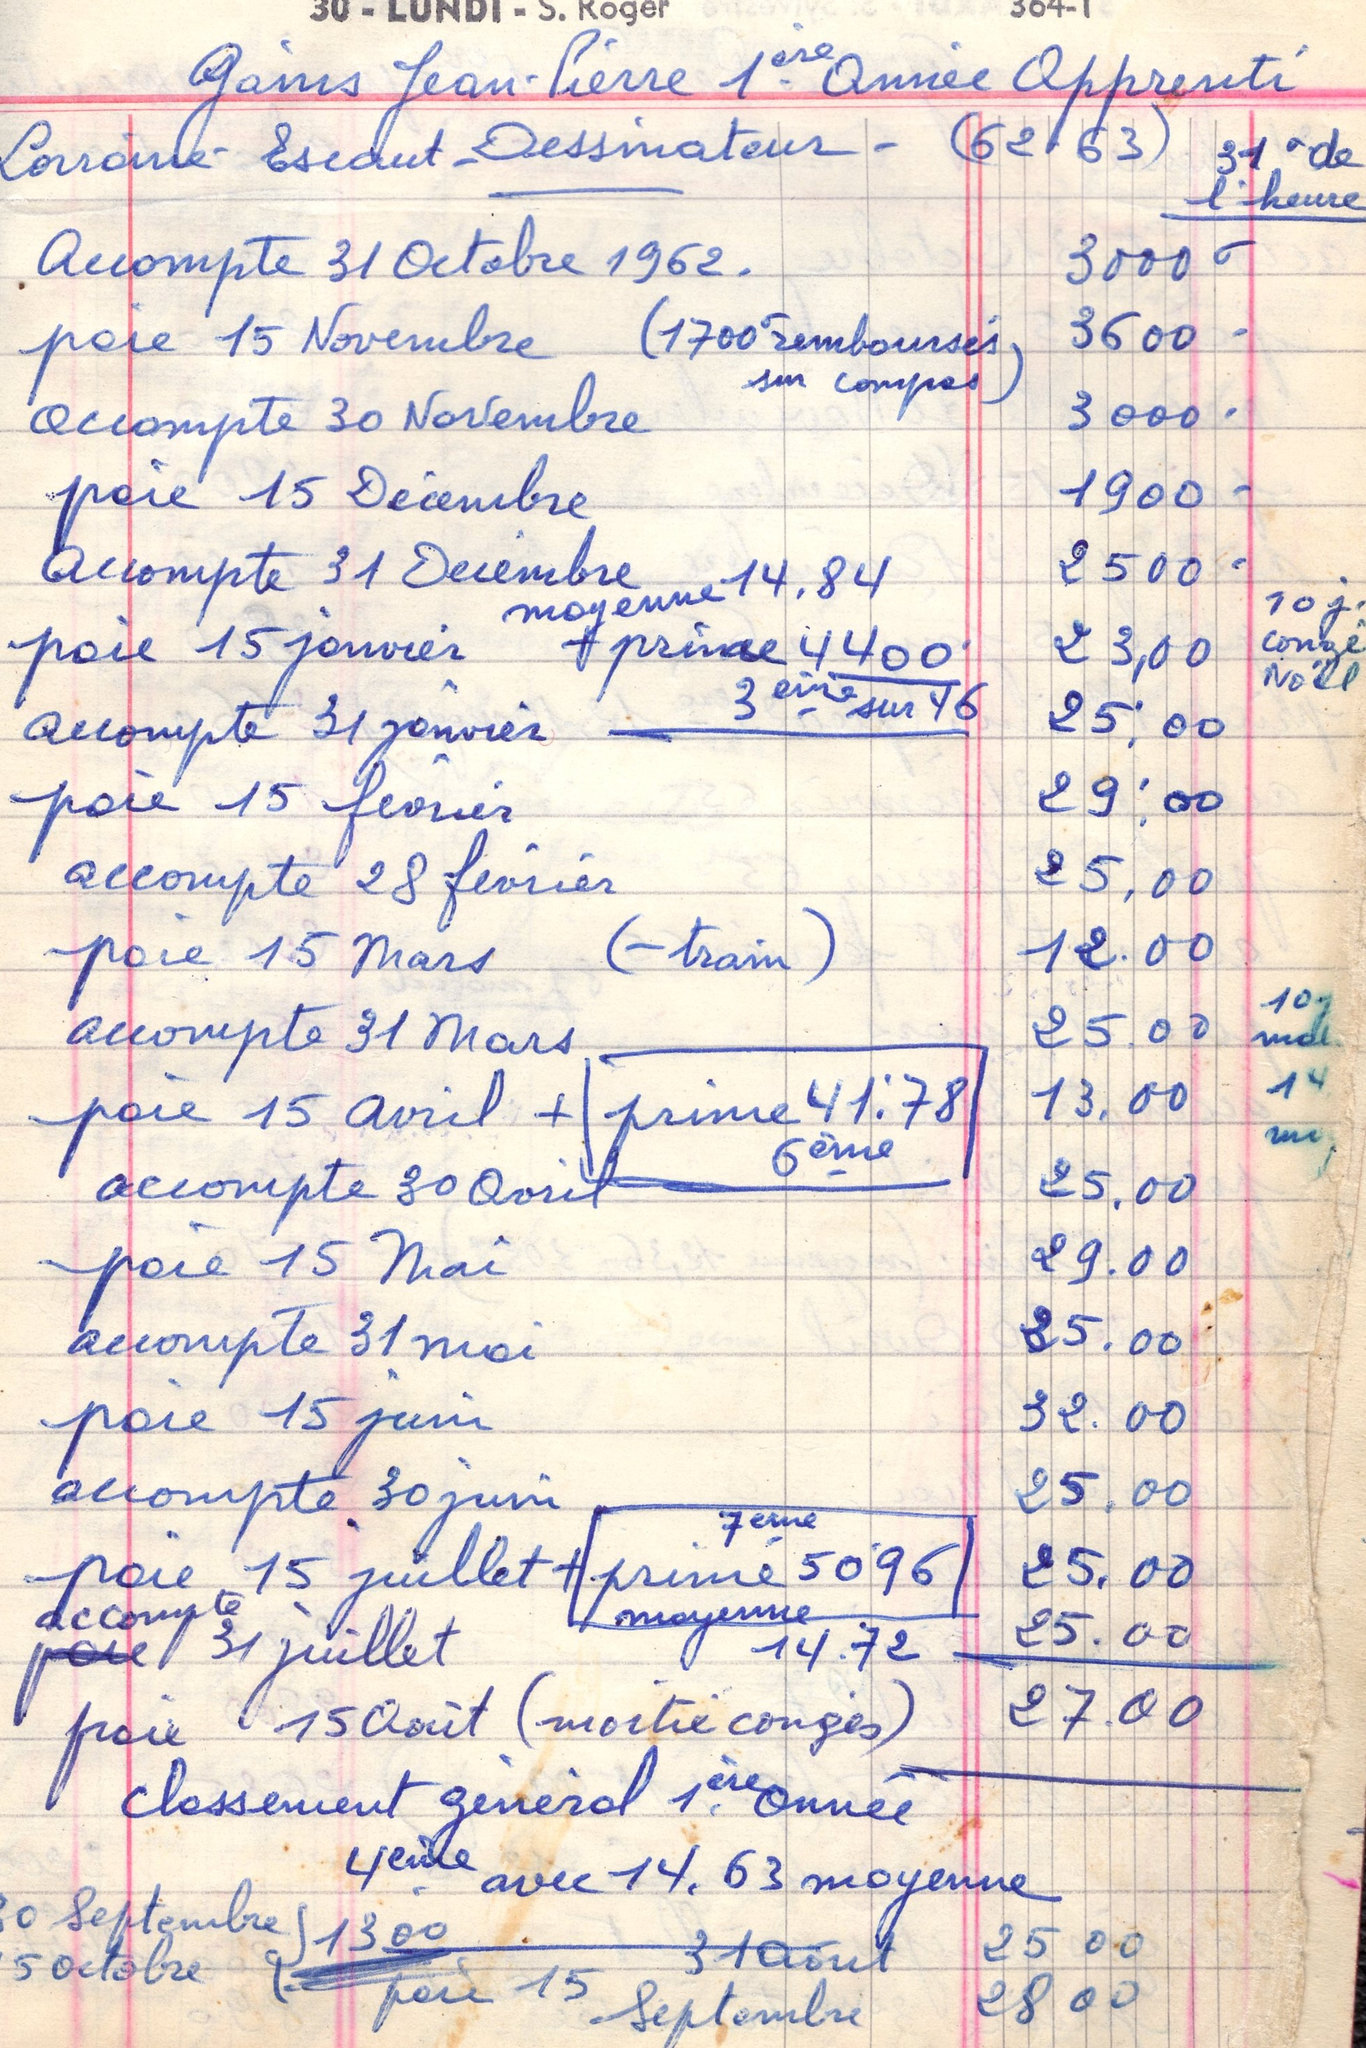 30 - LUNDI - S. Roger 364-1
Gains Jean-Pierre 1ère Année Apprenti
Lorraine-Escaut-Dessinateur - (62.63) 31. de
l'heure
Accompte 31 Octobre 1962. 3000
paie 15 Novembre (1700 remboursés 3600 -
sur compas)
accompte 30 Novembre 3000.
paie 15 Décembre 1900 -
Accompte 31 Decembre 2500.
moyenne 14.84
paie 15 janvier + prime 4400 23,00 10 j. congé Noël
3ème sur 46
accompte 31 janvier 25,00
paie 15 février 29,00
accompte 28 février 25,00
paie 15 Mars (- train) 12.00
accompte 31 Mars 25.00 10j mal
paie 15 Avril + prime 41.78 13.00 14
6ème
accompte 30 Avril 25.00
paie 15 Mai 29.00
accompte 31 mai 25.00
paie 15 juin 32.00
accompte 30 juin 25.00
7ème
paie 15 juillet + prime 5096 25.00
accompte moyenne
paie 31 juillet 14.72 25.00
paie 15 Août (moitié congés) 27.00
classement général 1ère année
4ème avec 14.63 moyenne
30 Septembre 1300 31 Août 25 00
15 octobre paie 15 Septembre 28 00